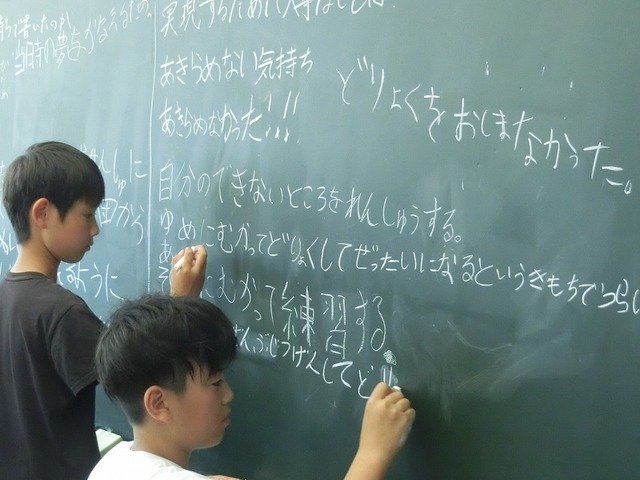 当時の夢をかなえるため
実現するために大事なことは
あきらめない気持ち
あきらめなかった!!!
どりょくをおしまなかった。
自分のできないところをれんしゅうする。
ゆめにむかってどりょくしてぜったいになるというきもちでつらい
にむかって練習する。
じつげんしてど
せんしゅに
から
るように